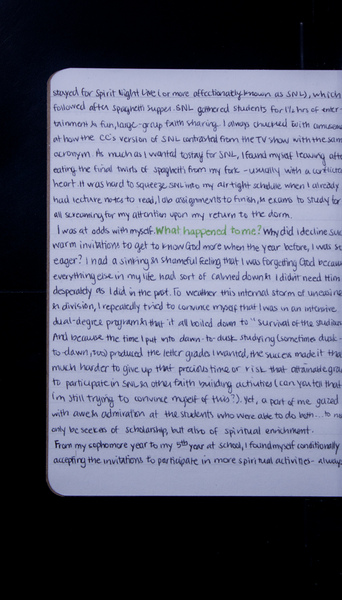 stayed for Spirit Night Live (or more affectionately known as SNL), which
followed after spaghetti supper. SNL gathered students for 1½ hrs of enter-
tainment & fun, large-group faith sharing. I always chuckled with amuseme
at how the CC's version of SNL contrasted from the TV show with the sam
acronym. As much as I wanted to stay for SNL, I found myself leaving afte
eating the final twirls of spaghetti from my fork - usually with a conflicte
heart. It was hard to squeeze SNL into my airtight schedule when I already
had lecture notes to read, lab assignments to finish, & exams to study for
all screaming for my attention upon my return to the dorm.
I was at odds with myself. What happened to me? Why did I decline suc
warm invitations to get to know God more when the year before, I was so
eager? I had a sinking & shameful feeling that I was forgetting God becaus
everything else in my life had sort of calmed down & I didn't need Him
desperately as I did in the past. To weather this internal storm of uneasine
& division, I repeatedly tried to convince myself that I was in an intensive
dual-degree program & that it all boiled down to "survival of the studious
And because the time I put into dawn-to-dusk studying (sometimes dusk-
to-dawn, too) produced the letter grades I wanted, the success made it tha
much harder to give up that precious time or risk that attainable gra
to participate in SNL & other faith building activities (can you tell that
I'm still trying to convince myself of this?). Yet, a part of me gazed
with awe & admiration at the students who were able to do both... to no
only be seekers of scholarship, but also of spiritual enrichment.
From my sophomore year to my 5th year at school, I found myself conditionally
accepting the invitations to participate in more spiritual activities - always